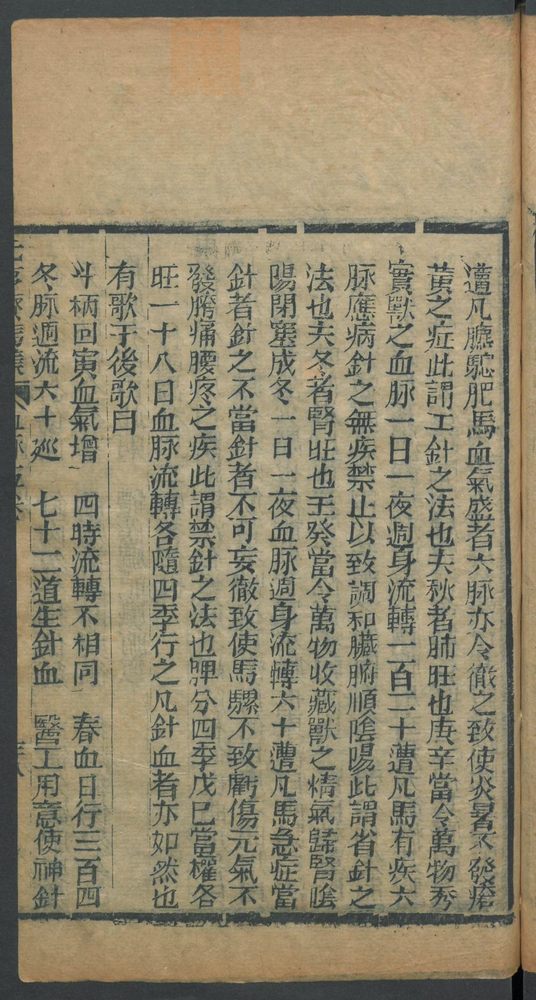 遭凡膘駝肥馬血氣盛者六脉亦令徹之致使炎暑不發瘡
黄之症此謂工針之法也夫秋者肺旺也庚辛當令萬物秀
實獸之血脉一日一夜週身流轉一百二十遭凡馬有疾六
脉應病針之無疾禁止以致調和臟腑順隂陽此謂省針之
法也夫冬者腎旺也壬癸當令萬物收藏獸之精氣歸腎隂
陽閉塞成冬一日一夜血脉週身流轉六十遭凡馬急症當
針者針之不當針者不可妄徹致使馬騾不致虧傷元氣不
發胯痛腰疼之疾此謂禁針之法也脾分四季戊巳當權各
旺一十八日血脉流轉各隨四季行之凡針血者亦如然也
有歌于後歌曰
斗柄回寅血氣增　四時流轉不相同　春血日行三百四
冬脉週流六十巡　七十二道生針血　醫工用意使神針